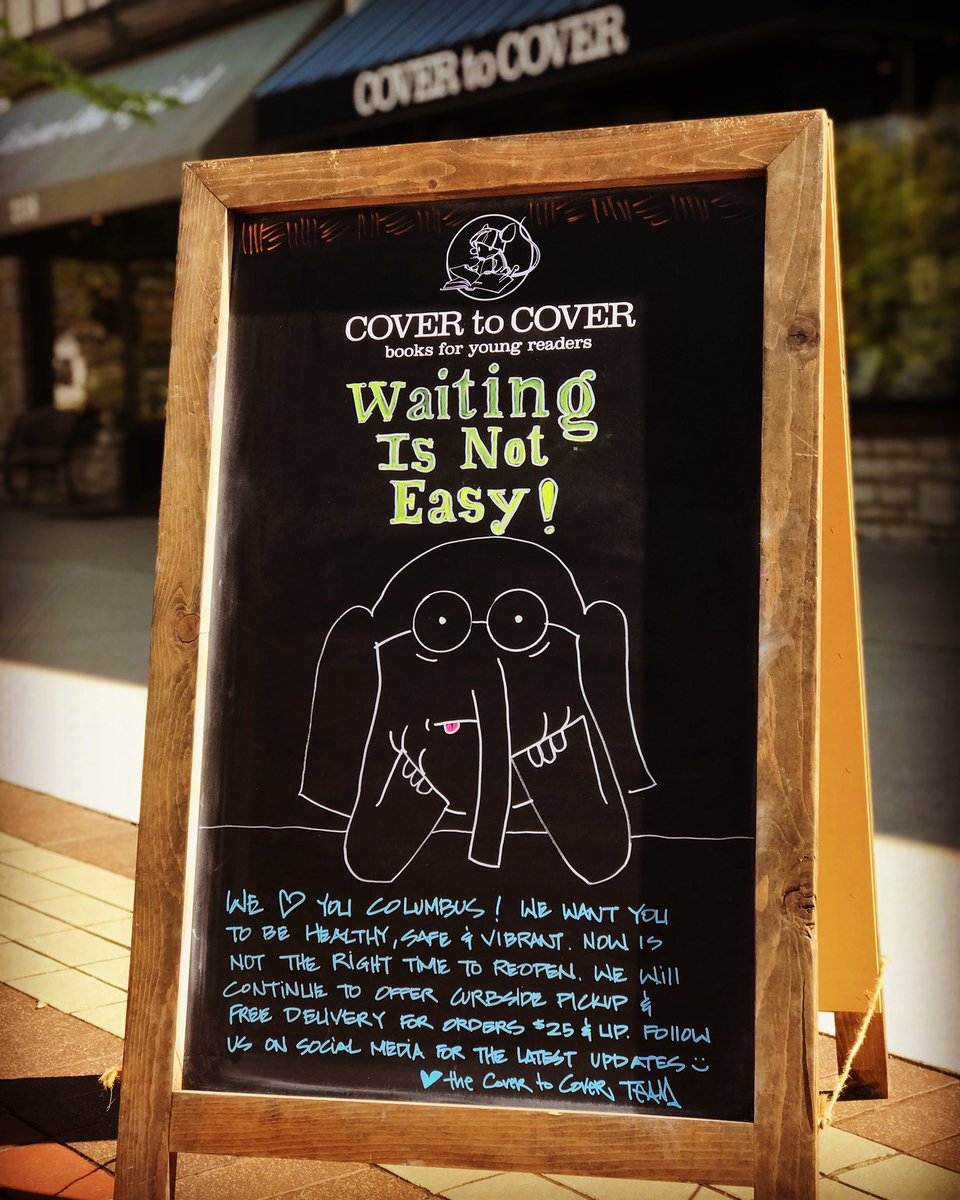 COVER to COVER
COVER to COVER
books for young readers
Waiting
Is Not
Easy!
WE ♡ YOU COLUMBUS! WE WANT YOU
TO BE HEALTHY, SAFE & VIBRANT. NOW IS
NOT THE RIGHT TIME TO REOPEN. WE WILL
CONTINUE TO OFFER CURBSIDE PICKUP &
FREE DELIVERY FOR ORDERS $25 & UP. FOLLOW
US ON SOCIAL MEDIA FOR THE LATEST UPDATES ☺
♥ the Cover to Cover TEAM